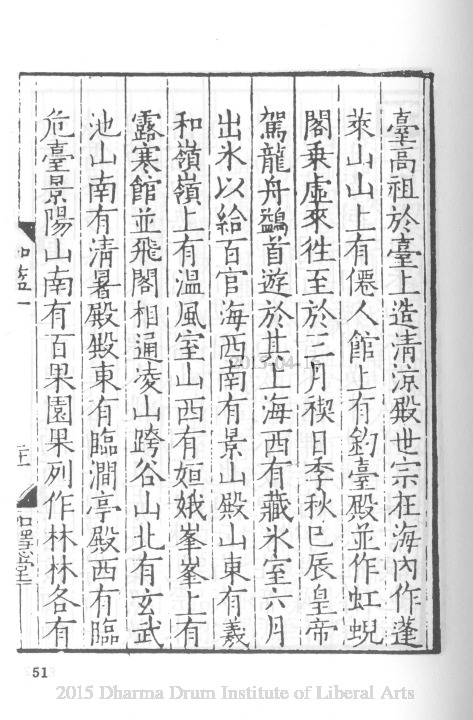 臺高祖於臺上造清涼殿世宗在海內作蓬
萊山山上有僊人館上有釣臺殿並作虹蜺
閣乗虛來徃至於三月禊日季秋巳辰皇帝
駕龍舟鷁首遊於其上海西有藏氷室六月
出氷以給百官海西南有景山殿山東有羲
和嶺嶺上有温風室山西有姮娥峯峯上有
露寒館並飛閣相通凌山跨谷山北有玄武
池山南有清暑殿殿東有臨澗亭殿西有臨
危臺景陽山南有百果園果列作林林各有
51
2015 Dharma Drum Institute of Liberal Arts